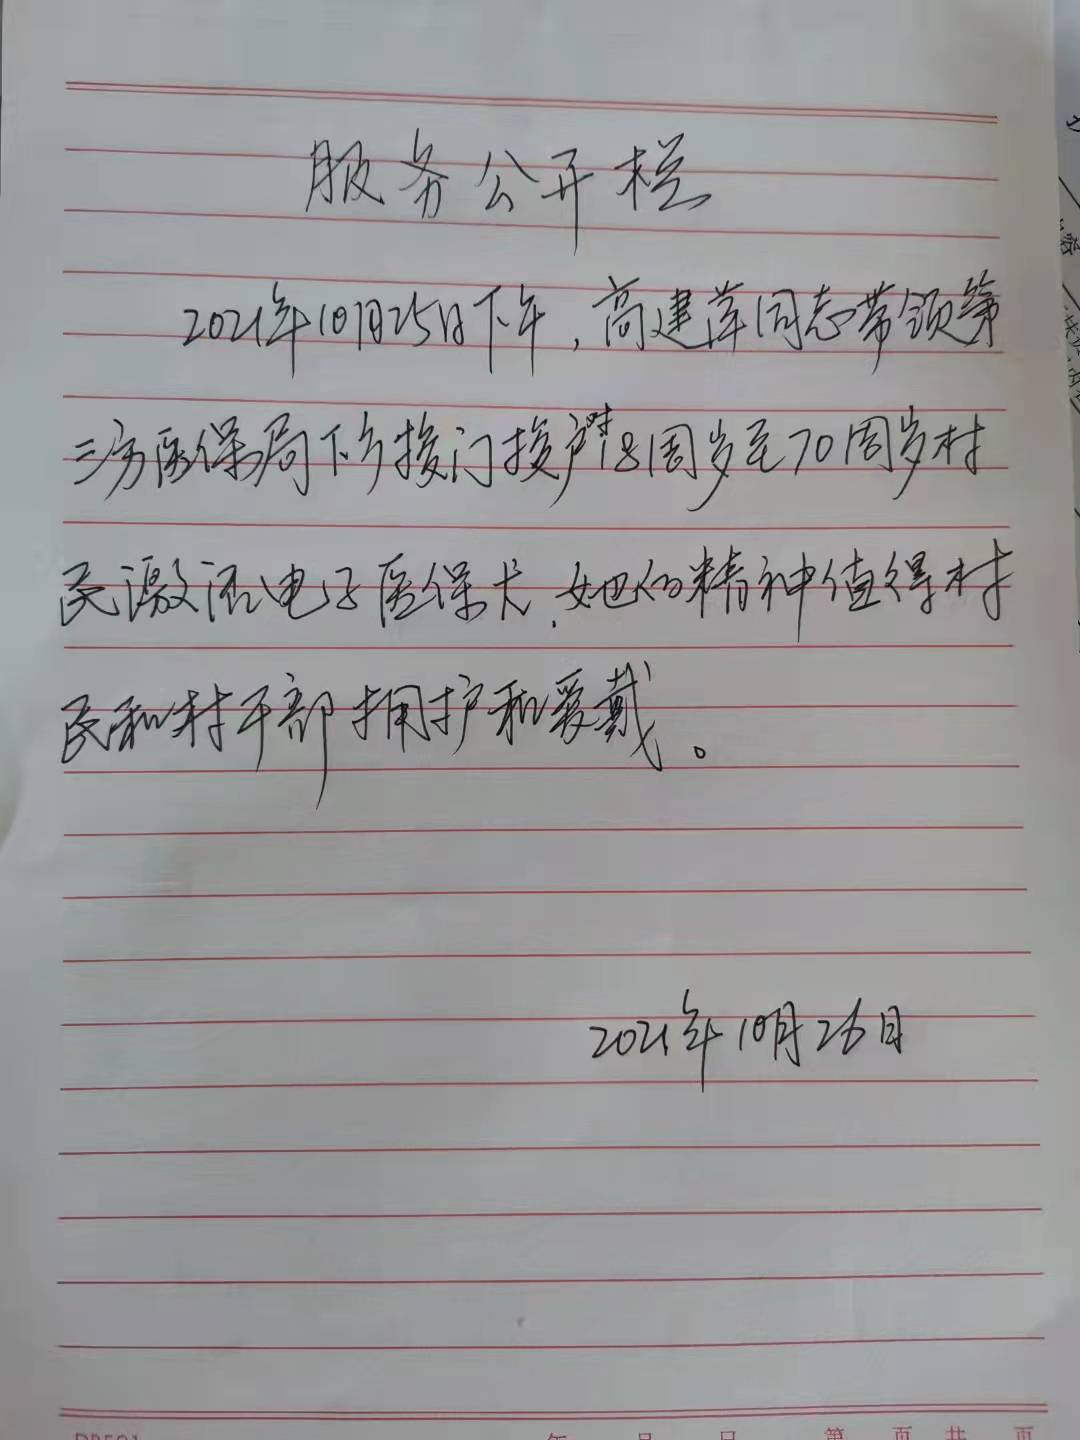 服务公开栏
2021年10月25日下午,高建萍同志带领第
三方医保局下乡挨门挨户对18周岁至70周岁村
民激活电子医保卡.她的精神值得村
民和村干部拥护和爱戴。
2021年10月26日
年 月 日 第 页 共 页